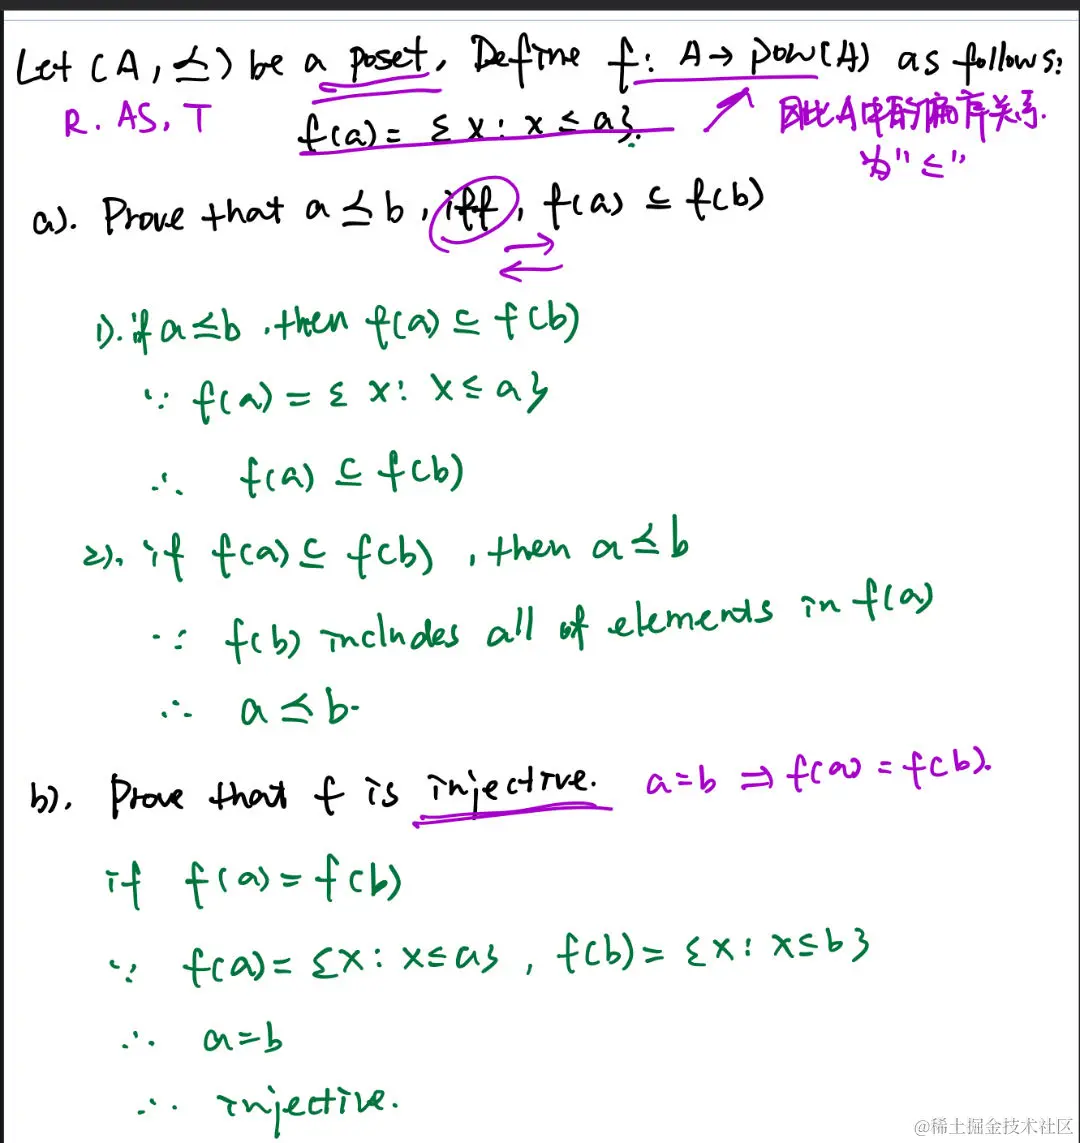 Let (A, ⪯) be a poset. Define f: A → pow(A) as follows:
R. AS, T
f(a) = { x : x ≤ a }.
因此A中的偏序关系.
为"≤"
a). Prove that a ⪯ b, iff, f(a) ⊆ f(b)
1). if a ⪯ b, then f(a) ⊆ f(b)
∵ f(a) = { x : x ≤ a }
∴ f(a) ⊆ f(b)
2). if f(a) ⊆ f(b), then a ⪯ b
∵ f(b) includes all of elements in f(a)
∴ a ⪯ b.
b). Prove that f is injective. a=b ⇒ f(a) = f(b).
if f(a) = f(b)
∵ f(a) = {x : x ≤ a}, f(b) = {x : x ≤ b}
∴ a=b
∴ injective.
@稀土掘金技术社区